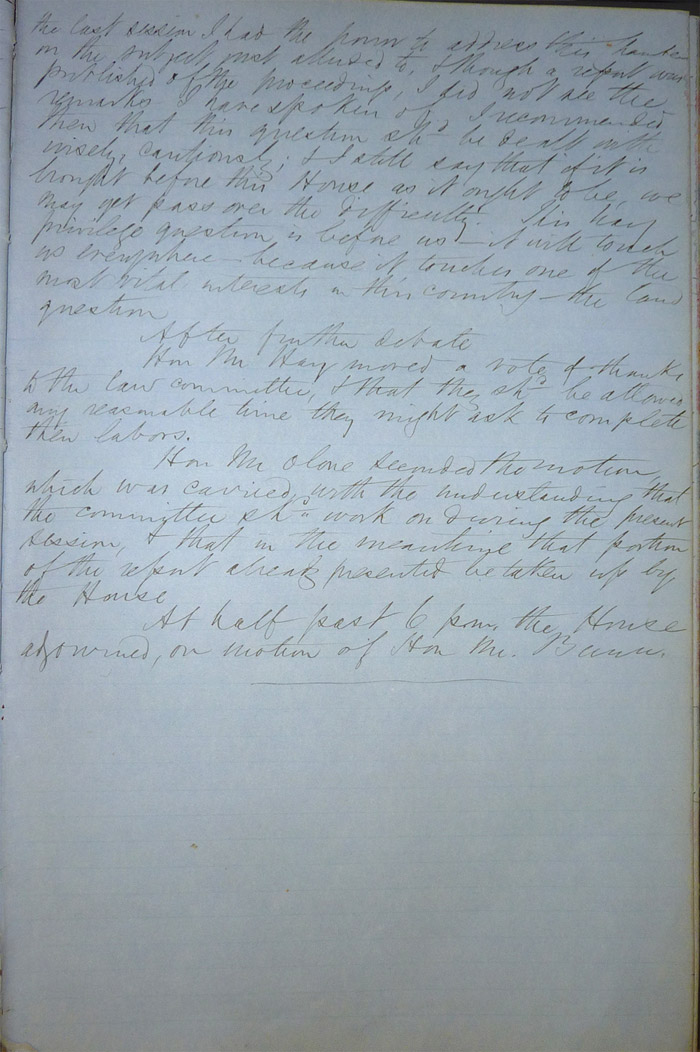 the last session I had the honor to address this House
on the subject just alluded to, & though a report was
published of the proceedings, I did not see the
remarks I have spoken of. I recommended
then that this question shd be dealt with
wisely, cautiously; & I still say that if it is
brought before this House as it ought to be, we
may get pass over the difficulty. This
privilege question is before us – it will touch
us everywhere – because it touches one of the
most vital interests in this country – the land
question
After further debate
Hon Mr Hay moved a vote of thanks
to the law committee, & that they shd be allowed
any reasonable time they might ask to complete
their labors.
Hon Mr Olone seconded the motion,
which was carried, with the understanding that
the committee shd work on during the present
session, & that in the meantime that portion
of the report already presented be taken up by
the House
At half past 6 p.m. the House
adjourned, on motion of Hon Mr.